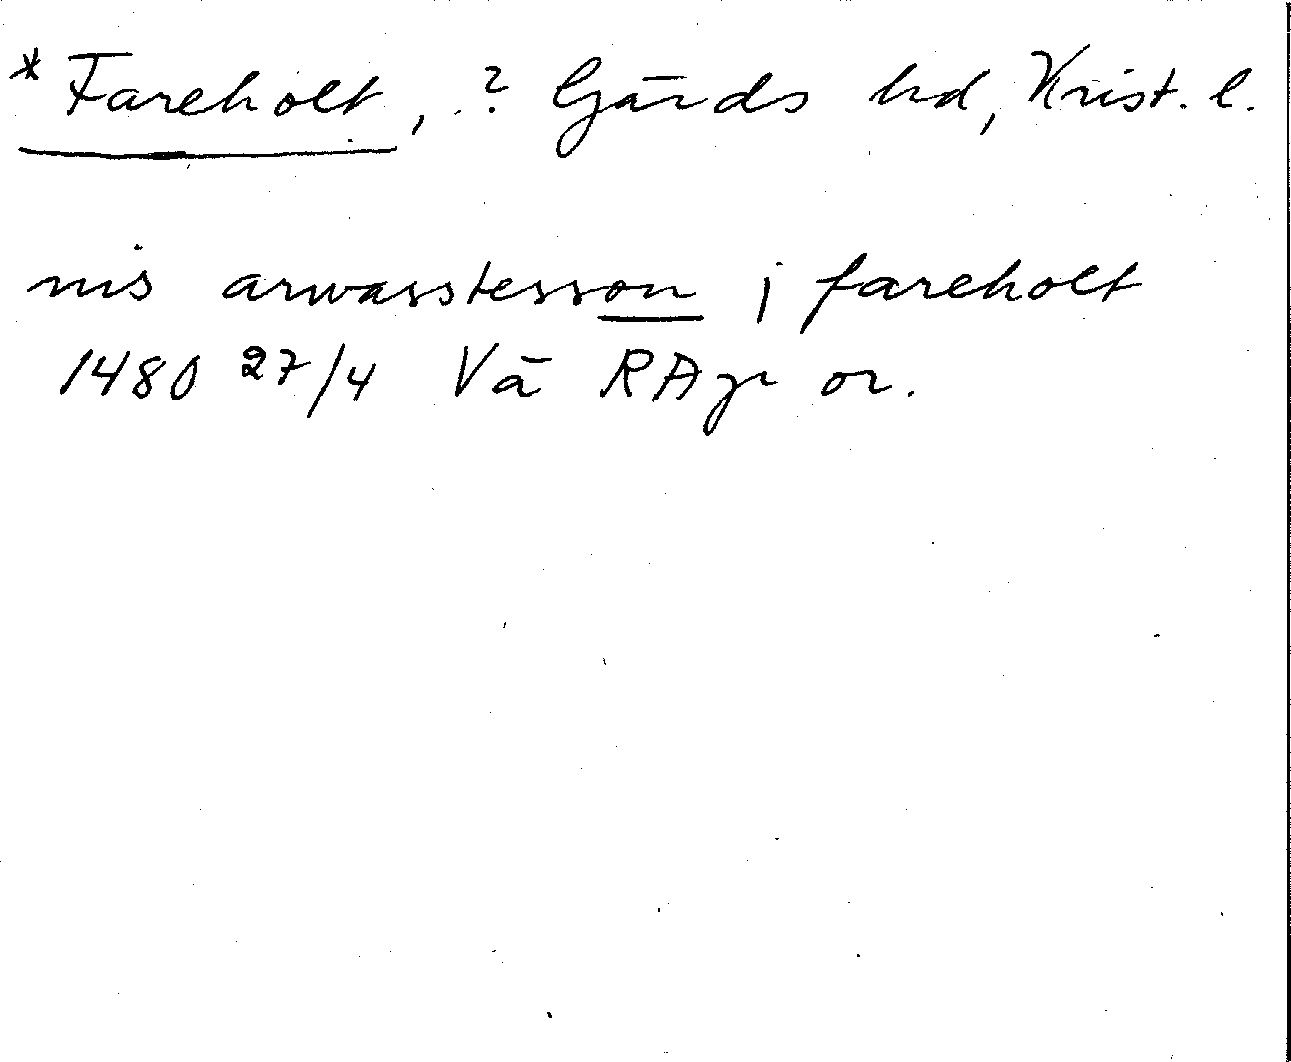 *Fareholt, ? Gärds hd, Krist. l.
nis arwasstesson j fareholt
1480 27/4 Vä RApr or.